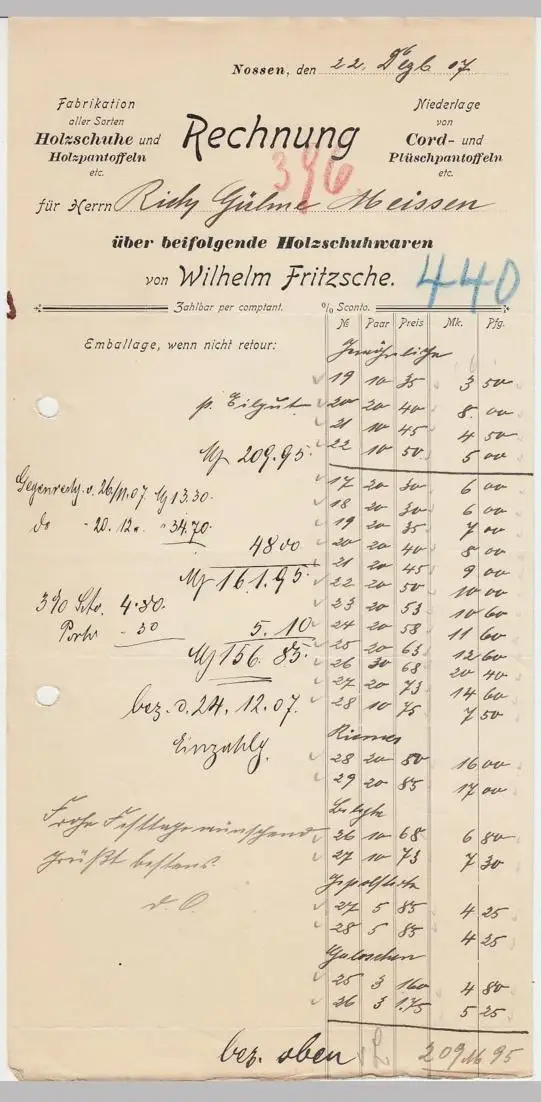 Nossen, den 22. Dezb 07
Fabrikation
aller Sorten
Holzschuhe und
Holzpantoffeln
etc.
Rechnung
Niederlage
von
Cord- und
Plüschpantoffeln
etc.
396.
für Herrn Rich Gülme Meissen
über beifolgende Holzschuhwaren
von Wilhelm Fritzsche.
440
Zahlbar per comptant. % Sconto.
Emballage, wenn nicht retour:
№ Paar Preis Mk. Pfg.
Gewöhnliche
19 10 35 3 50
20 20 40 8 00
21 10 45 4 50
22 10 50 5 00
17 20 30 6 00
18 20 30 6 00
19 20 35 7 00
20 20 40 8 00
21 20 45 9 00
22 20 50 10 00
23 20 53 10 60
24 20 58 11 60
25 20 63 12 60
26 30 68 20 40
27 20 73 14 60
28 10 75 7 50
Riemen
28 20 80 16 00
29 20 85 17 00
26 10 68 6 80
27 10 73 7 30
27 5 85 4 25
28 5 85 4 25
Galoschen
25 3 160 4 80
26 3 1.75 5 25
209 M 95
p. Eilgut
M 209.95.
Gegenrechg. v. 26/11.07. M 13.30.
do - 20. 12. - 34.70.
48 00
M 161.95.
3% Sto. 4.80.
Porto - 30
5.10
M 156.85.
bez. d. 24.12.07.
Einzahlg.
Frohe Festtage wünschend
grüßt bestens
d. O.
bez. oben